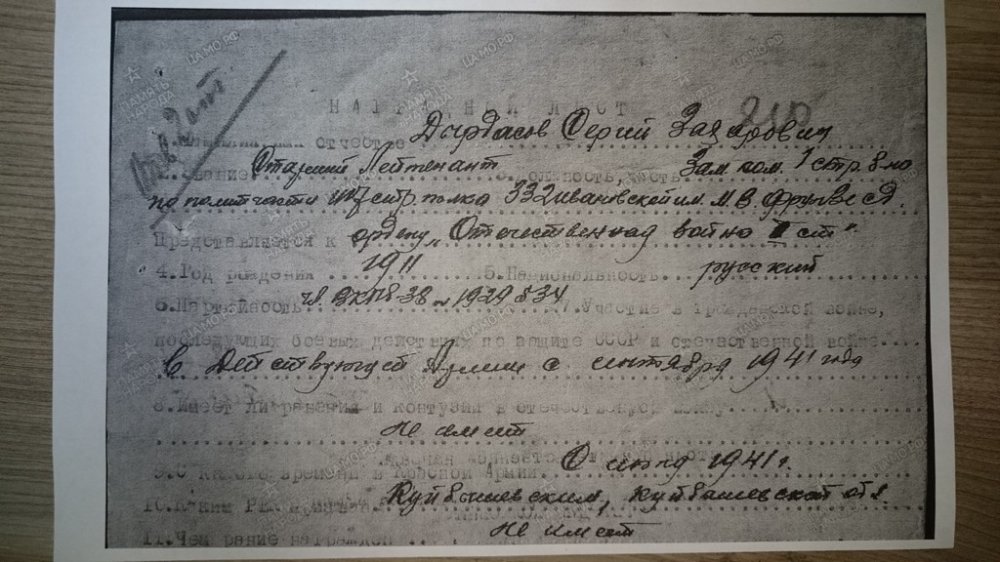 НАГРАДНЫЙ ЛИСТ
210
отчество Сергий Захарович
Старший Лейтенант Зам ком. 1 стр. б-на
по политчасти стр. полка 332 Ивановской им. М. В. Фрунзе СД.
Представляется к ордену „Отечественная война II ст“
4. Год рождения 1911 5. Национальность русский
6. Партийность чл. ВКПб-38 7. Участие в гражданской войне,
последующих боевых действиях по защите СССР и отечественной войне
В Действующей Армии с сентября 1941 года
8. Имеет ли ранения и контузии в отечественной войне
Не имеет
9. С какого времени в Красной Армии С июня 1941 г.
10. Каким РВК Куйбышевским, Куйбышевской обл.
11. Чем ранее награжден Не имеет
ПАМЯТЬ НАРОДА
ЦАМО.РФ